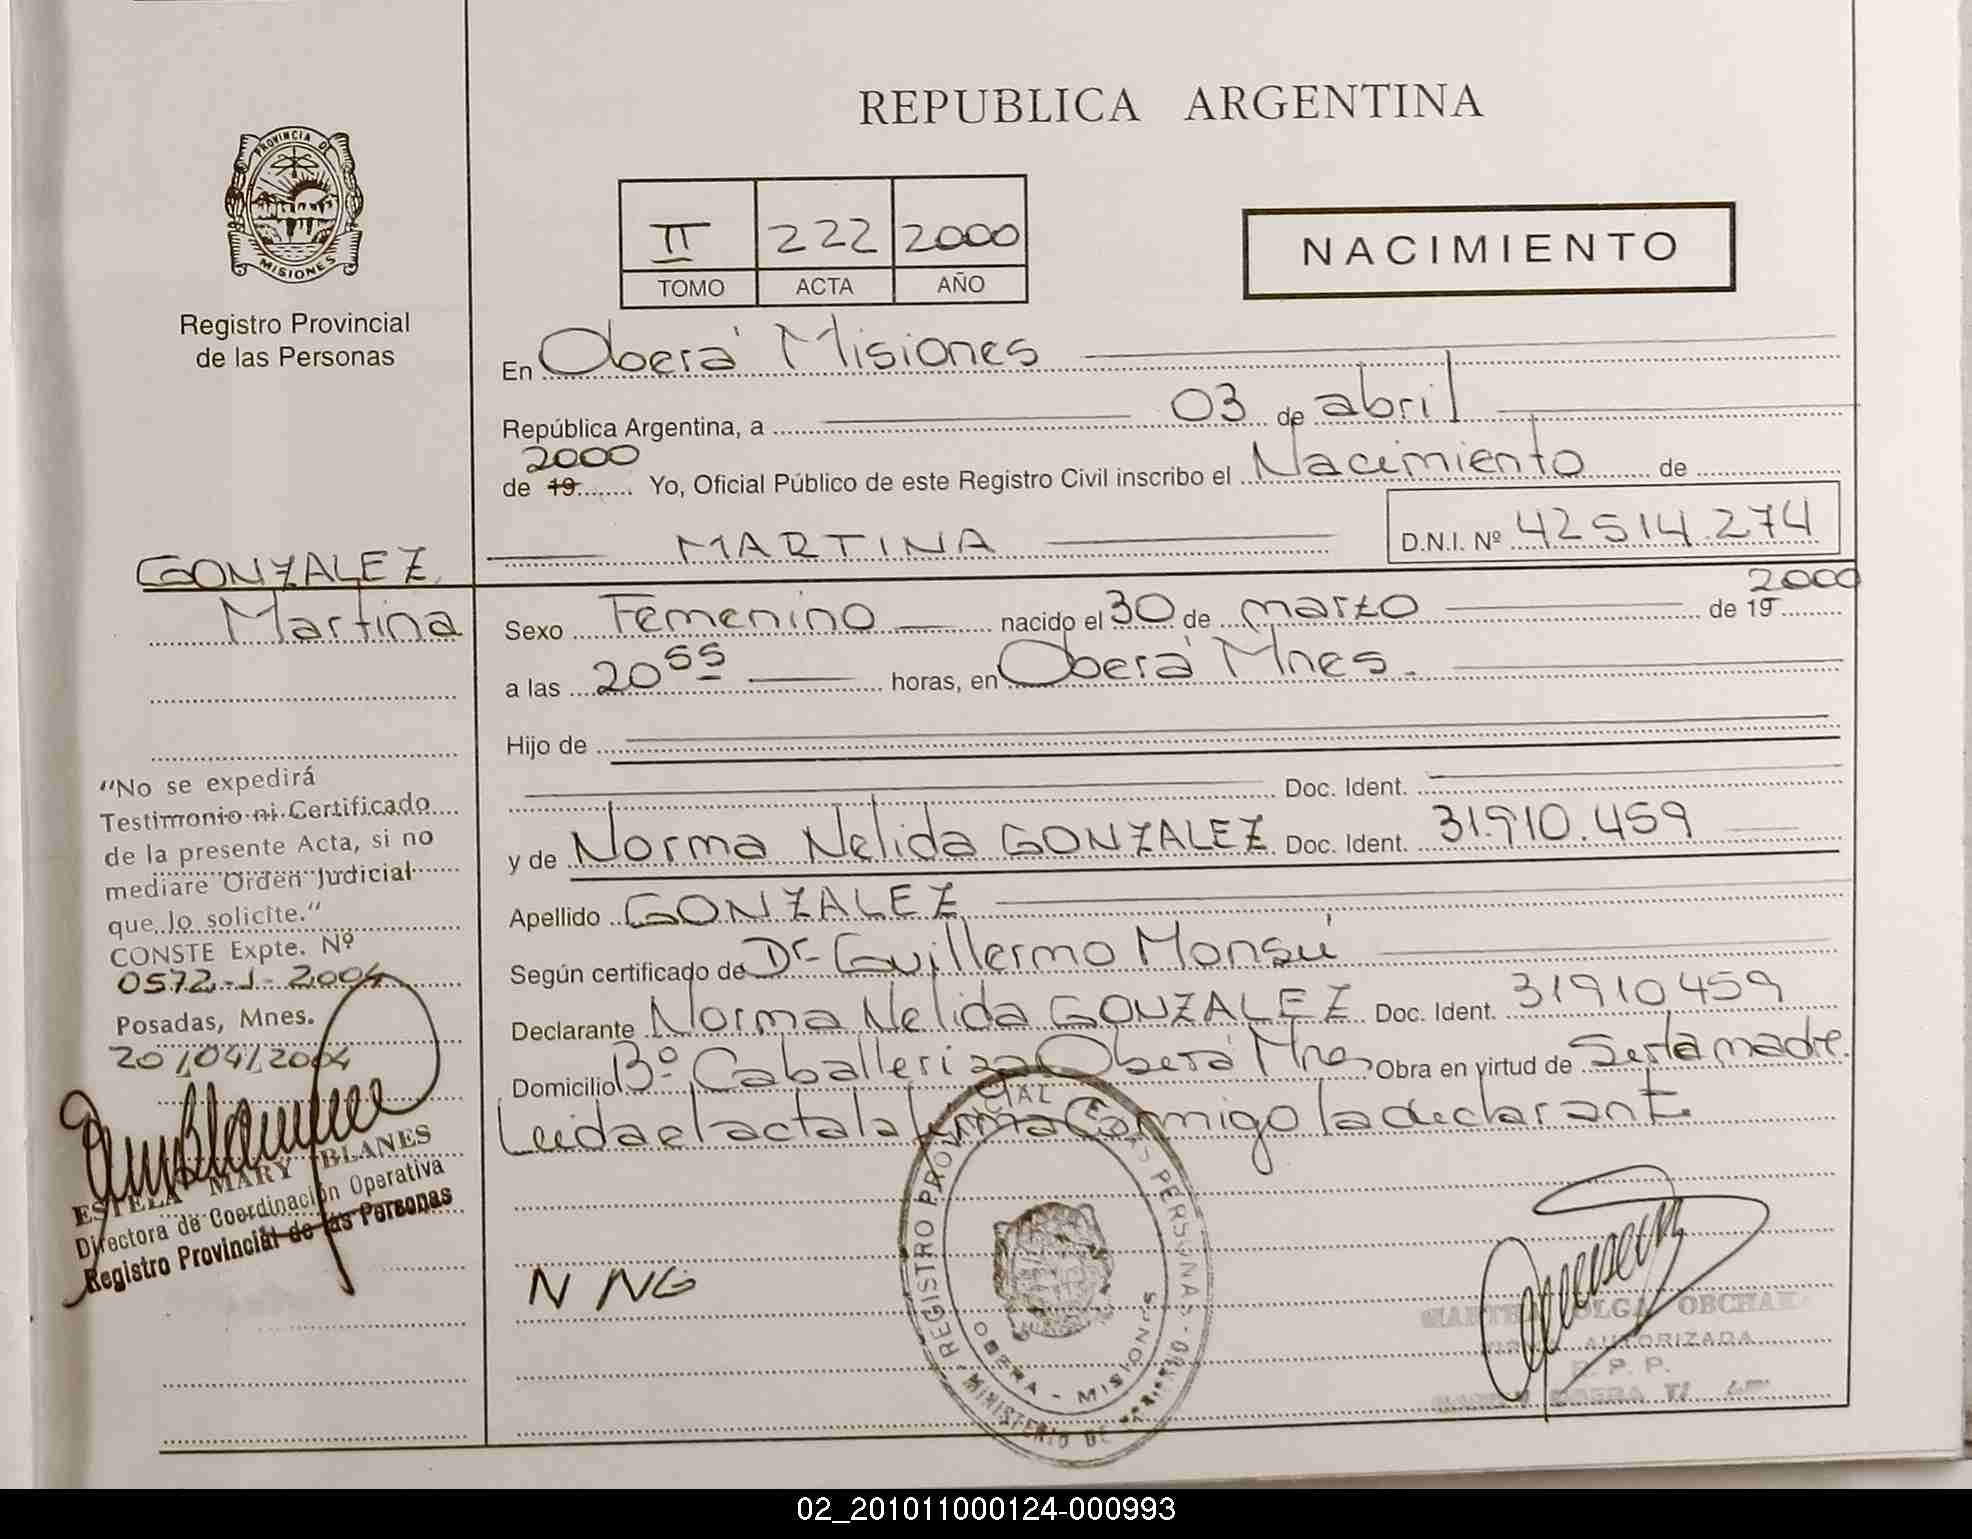 REPUBLICA ARGENTINA
PROVINCIA DE
MISIONES
Registro Provincial
de las Personas
II 222 2000
TOMO ACTA AÑO
NACIMIENTO
En Oberá Misiones
República Argentina, a 03 de abril
2000
de 19 Yo, Oficial Público de este Registro Civil inscribo el Nacimiento de
MARTINA D.N.I. Nº 42514.274
GONZALEZ
Martina
2000
Sexo Femenino nacido el 30 de marzo de 19
a las 20 55 horas, en Oberá Mnes.
Hijo de
Doc. Ident.
y de Norma Nelida GONZALEZ Doc. Ident. 31.910.459
Apellido GONZALEZ
Según certificado de Dr. Guillermo Monsú
Declarante Norma Nelida GONZALEZ Doc. Ident. 31910459
Domicilio Bº Caballeriza Oberá Mnes Obra en virtud de Ser la madre.
Leida el acta la firma Conmigo la declarante
"No se expedirá
Testimonio ni Certificado
de la presente Acta, si no
mediare Orden Judicial
que lo solicite."
CONSTE Expte. Nº
0572-J-2004
Posadas, Mnes.
20/04/2004
ESTELA MARY BLANES
Directora de Coordinación Operativa
Registro Provincial de las Personas
N NG
REGISTRO PROVINCIAL DE LAS PERSONAS
MINISTERIO DE GOBIERNO
OBERA - MISIONES
MARTHA OLGA
AUTORIZADA
R. P. P.
02_201011000124-000993